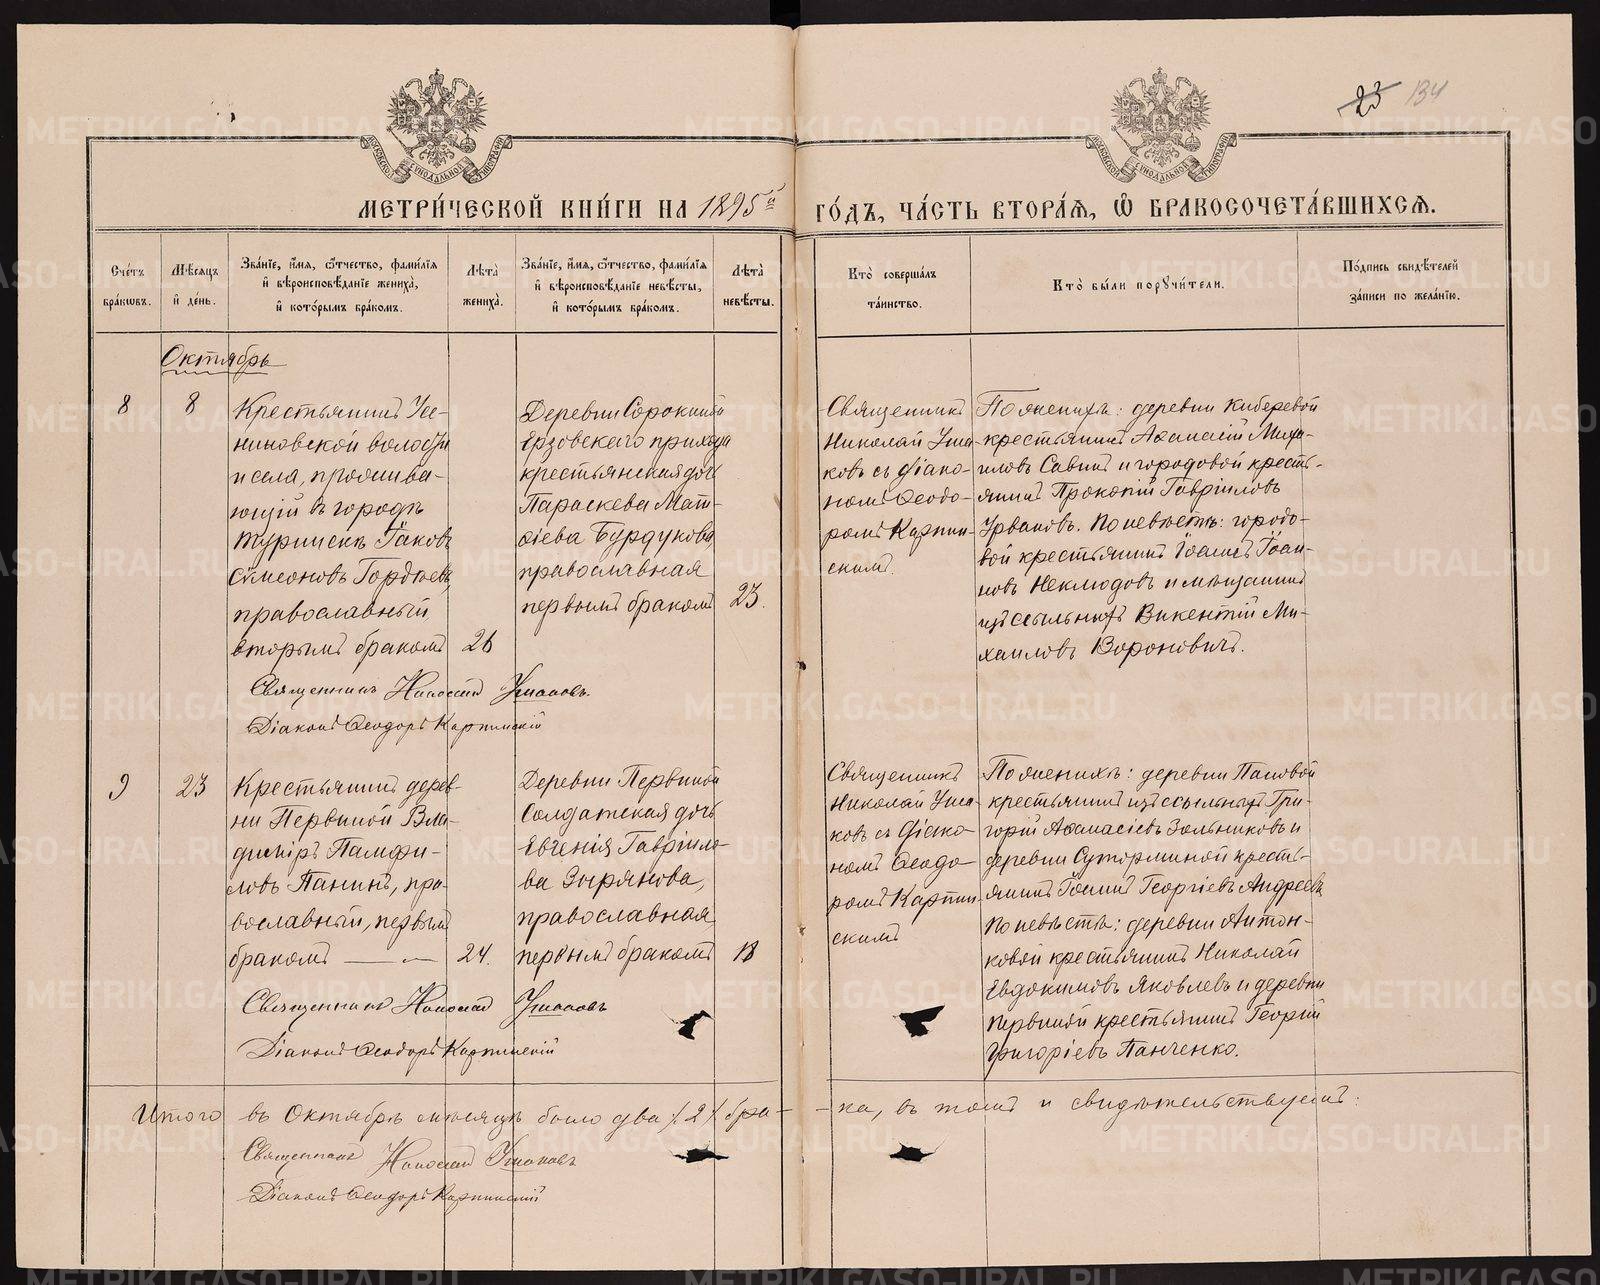 23 134
МЕТРИ́ЧЕСКОЙ КНИ́ГИ НА 1895й ГО́ДЪ, ЧА́СТЬ ВТОРА́Ѧ, Ѡ҆ БРАКОСОЧЕТА́ВШИХСѦ.
Сче́тъ бра́кѡвъ.
Мѣ́сѧцъ и҆ де́нь.
Зва́нїе, и҆́мѧ, ѻ҆́тчество, фами́лїѧ
и҆ вѣроисповѣ́данїе жениха̀,
и҆ кото́рымъ бра́комъ.
Лѣта̀ жениха̀.
Зва́нїе, и҆́мѧ, ѻ҆́тчество, фами́лїѧ
и҆ вѣроисповѣ́данїе невѣ́сты,
и҆ кото́рымъ бра́комъ.
Лѣта̀ невѣ́сты.
Кто̀ соверша́лъ
та́инство.
Кто̀ бы́ли порꙋчи́тели.
По́дпись свидѣ́телей
за́писи по жела́нїю.
Октябрь
8
8
Крестьянинъ Усе-
ниновской волости
и села, прожива-
ющій въ городѣ
Туринскѣ Іаковъ
Сѵмеоновъ Гордѣевъ,
православный,
вторымъ бракомъ
26
Деревни Сорокиной
Ерзовскаго прихода
крестьянская дочь
Параскева Мат-
ѳіева Бурдукова,
православная
первымъ бракомъ
23.
Священникъ
Николай Уша-
ковъ съ діако-
номъ Ѳеодо-
ромъ Карпин-
скимъ.
По женихѣ: деревни Киберевой
крестьянинъ Аѳанасій Миха-
иловъ Савинъ и городовой кресть-
янинъ Прокопій Гавріиловъ
Урвановъ. По невѣстѣ: городо-
вой крестьянинъ Іоаннъ Іоан-
новъ Неклюдовъ и мѣщанинъ
изъ ссыльныхъ Викентій Ми-
хаиловъ Вороновичъ.
Священникъ Николай Ушаковъ.
Діаконъ Ѳеодоръ Карпинскій
9
23
Крестьянинъ дерев-
ни Первиной Вла-
диміръ Памфи-
ловъ Панинъ, пра-
вославный, первымъ
бракомъ
24.
Деревни Первиной
Солдатская дочь
Евгенія Гавріило-
ва Зырянова,
православная,
первымъ бракомъ
18
Священникъ
Николай Уша-
ковъ съ діако-
номъ Ѳеодо-
ромъ Карпин-
скимъ
По женихѣ: деревни Пановой
крестьянинъ изъ ссыльныхъ Гри-
горій Аѳанасіевъ Зольниковъ и
деревни Суторминой кресть-
янинъ Іоаннъ Георгіевъ Андреевъ
По невѣстѣ: деревни Антон-
ковой крестьянинъ Николай
Евдокимовъ Яковлевъ и деревни
Первиной крестьянинъ Георгій
Григоріевъ Панченко.
Священникъ Николай Ушаковъ
Діаконъ Ѳеодоръ Карпинскій
Итого въ Октябрѣ мѣсяцѣ было два /2/ бра-
-ка, въ томъ и свидѣтельствуемъ:
Священникъ Николай Ушаковъ
Діаконъ Ѳеодоръ Карпинскій
METRIKI.GASO-URAL.RU